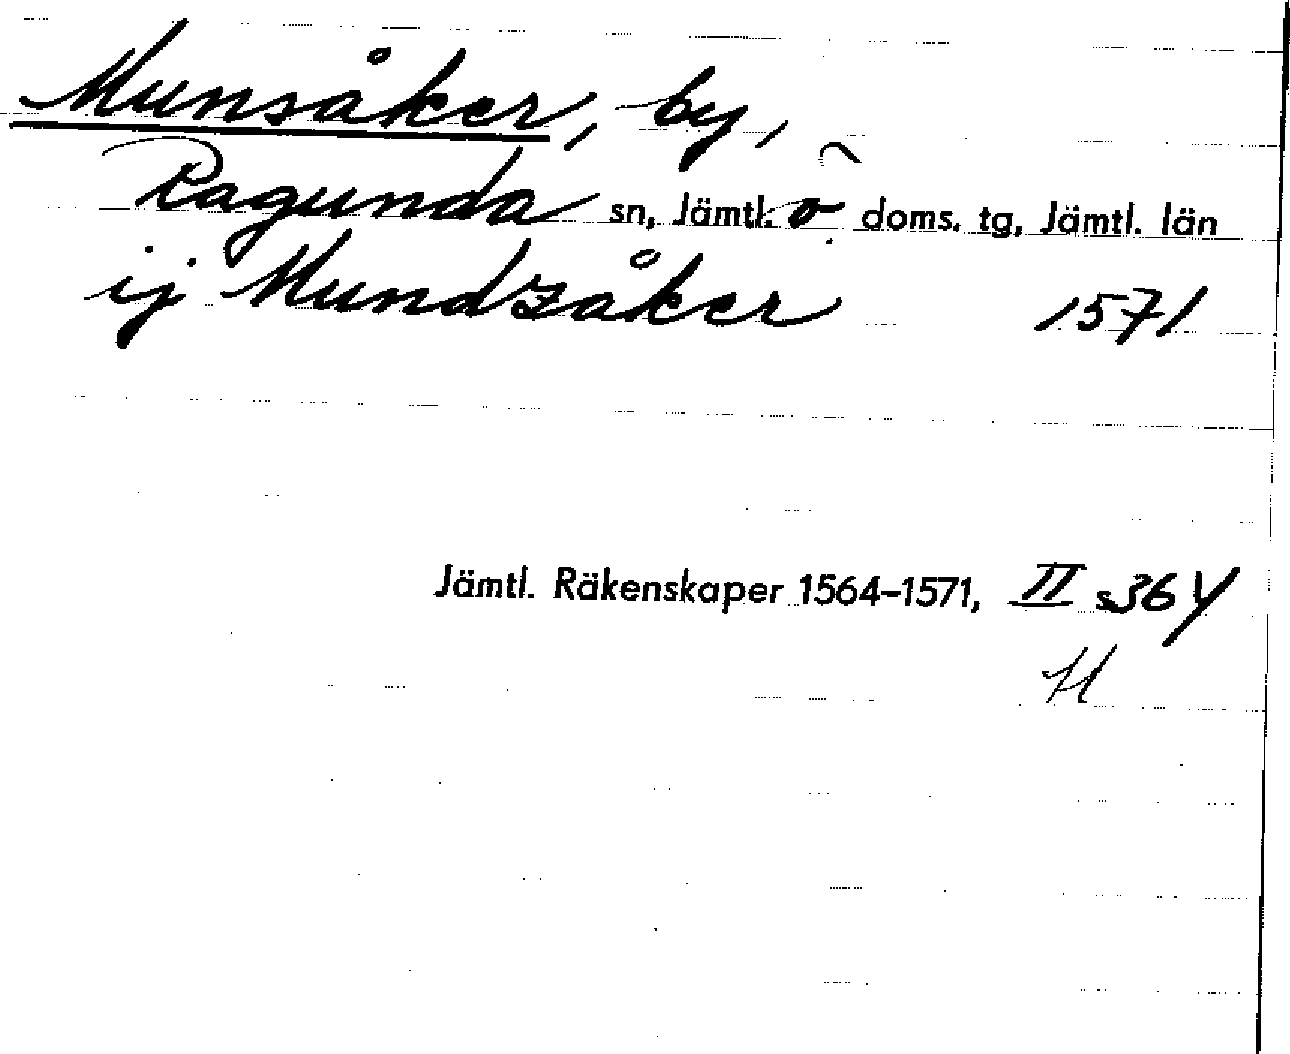 Munsåker, by,
Ragunda sn, Jämtl. ö doms. tg, Jämtl. län
ij Mundzåker 1571
Jämtl. Räkenskaper 1564–1571, II s 364
H